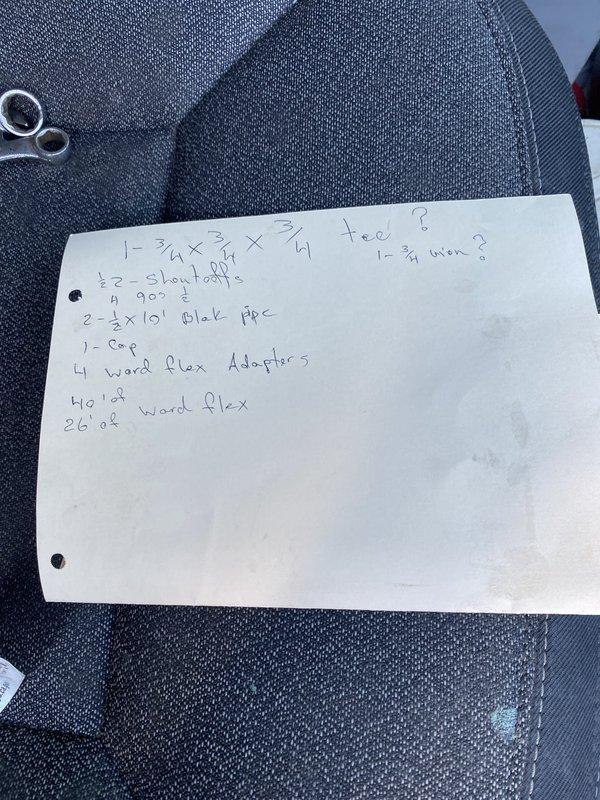 1- 3/4 x 3/4 x 3/4 tee ?
1- 3/4 uion ?
1/2 2 - Shoutoffs
4 90s 1/2
2 - 1/2 x 10' Blak pipe
1- Cap
4 word flex Adapters
40' of
26' of word flex